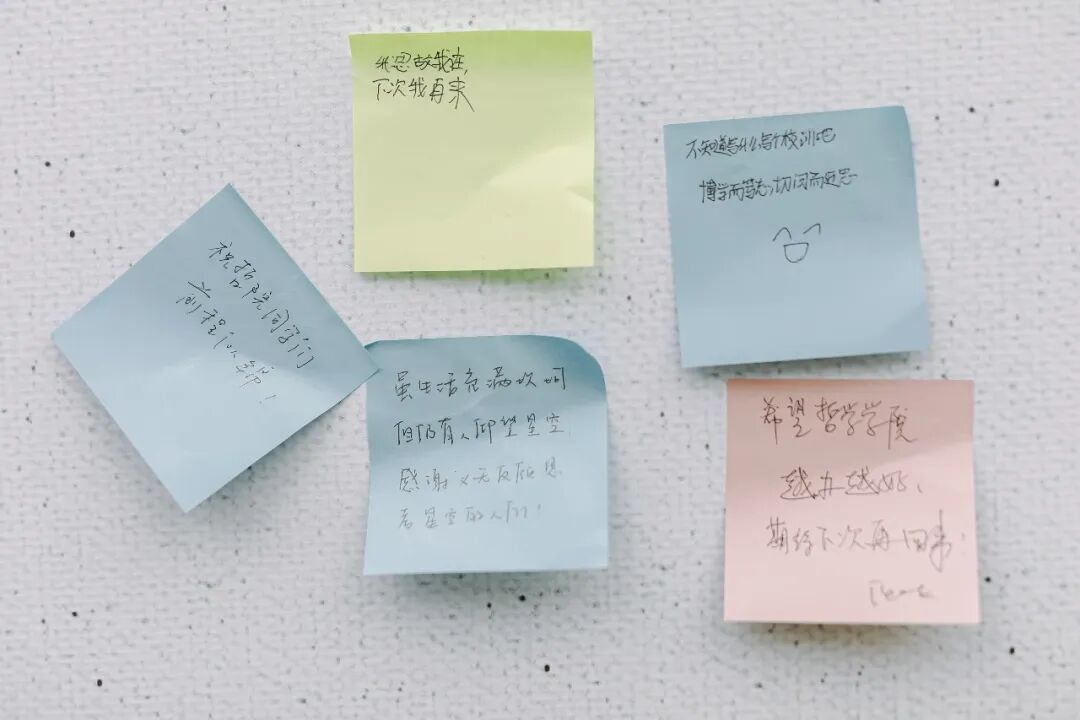 我思故我在,
下次我再来
不知道写什么写个校训吧
博学而笃志,切问而近思
祝哲院同学们
前程似锦!
虽生活充满坎坷
但仍有人仰望星空,
感谢义无反顾思
考星空的人们!
希望哲学学院
越办越好、
期待下次再回来!